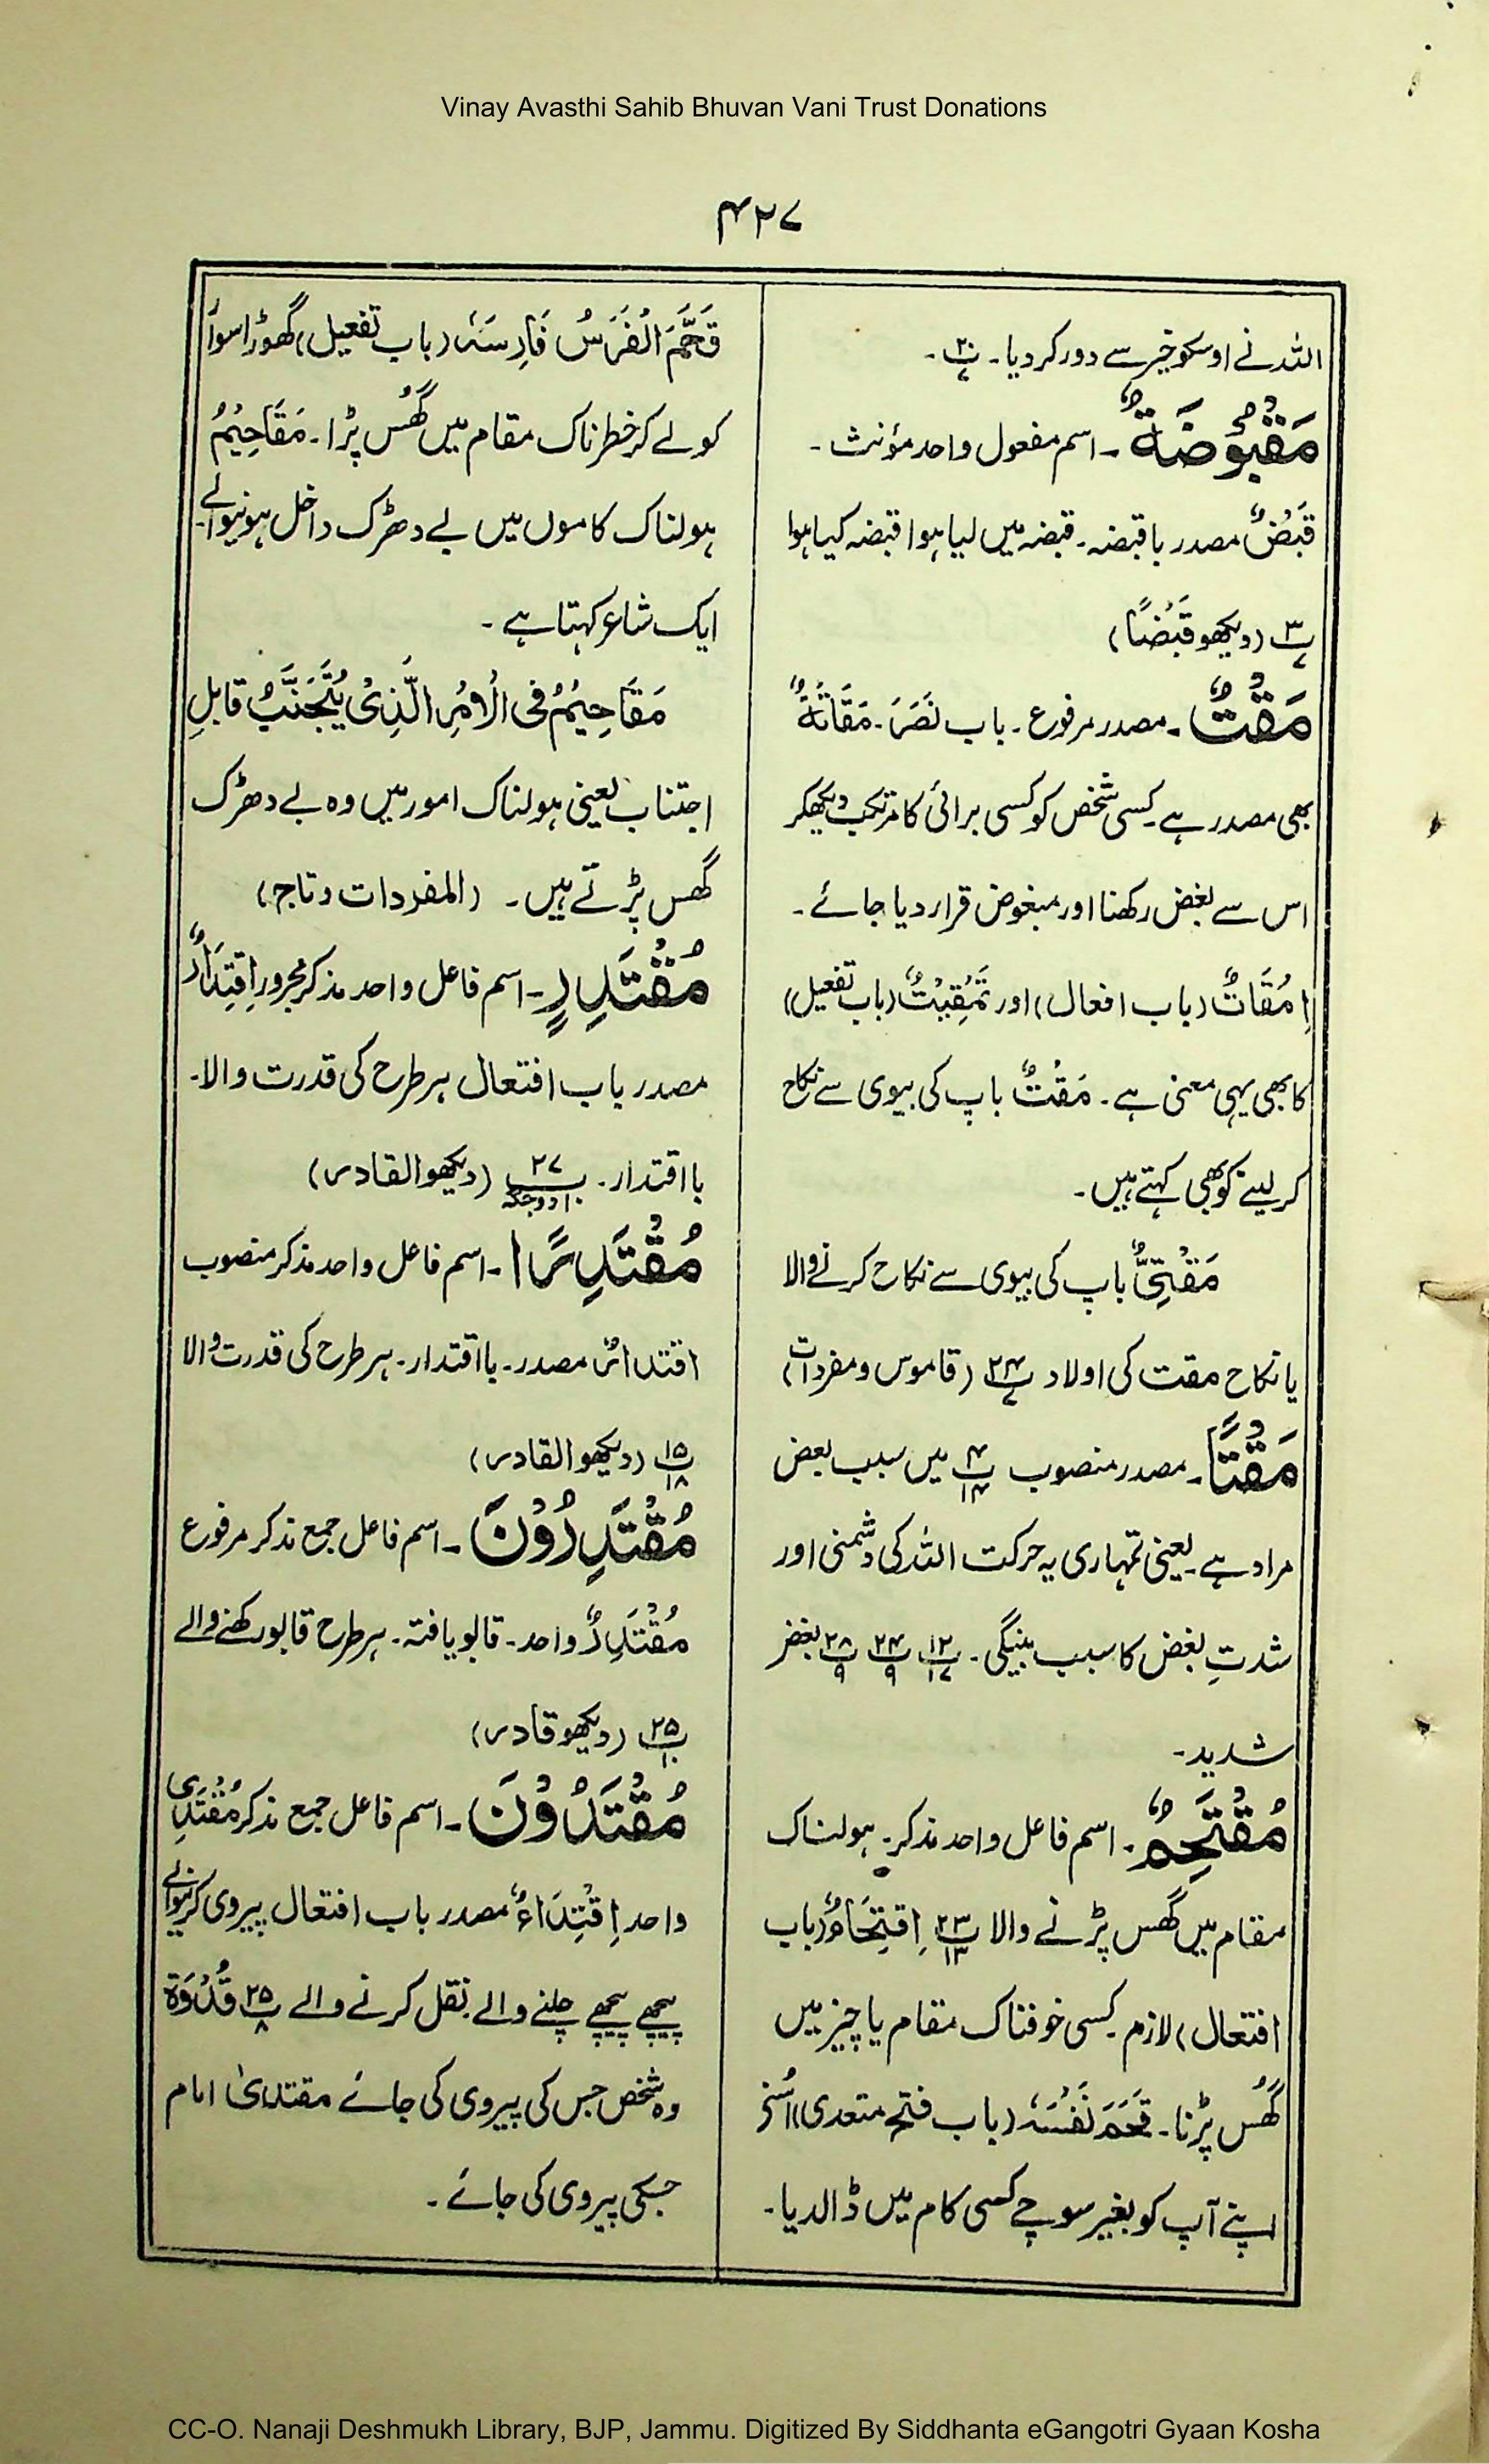 Vinay Avasthi Sahib Bhuvan Vani Trust Donations
۴۲۷
اللہ نے اوسکو خیر سے دور کر دیا۔ پ۲۰/۷۔
مَقْبُوْضَةٌ۔ اسم مفعول واحد مؤنث۔
قَبْضٌ مصدر با قبضہ۔ قبضہ میں لیا ہوا قبضہ کیا ہوا
پ۳/۷ (دیکھو قَبْضًا)
مَقْتٌ۔ مصدر مرفوع۔ باب نَصَرَ۔ مَقَاتَةٌ
بھی مصدر ہے۔ کسی شخص کو کسی برائی کا مرتکب دیکھکر
اس سے بغض رکھنا اور مبغوض قرار دیا جائے۔
اِمْقَاتٌ (باب افعال) اور تَمْقِيْتٌ (باب تفعیل)
کا بھی یہی معنی ہے۔ مَقْتٌ باپ کی بیوی سے نکاح
کر لینے کو بھی کہتے ہیں۔
مَقْتِيٌّ باپ کی بیوی سے نکاح کرنے والا
یا نکاح مقت کی اولاد پ۲۴/۷ (قاموس و مفردات)
مَقْتًا۔ مصدر منصوب پ۴/۱۴ میں سبب بعض
مراد ہے۔ یعنی تمہاری یہ حرکت اللہ کی دشمنی اور
شدتِ بغض کا سبب بنیگی۔ پ۱۲/۱۷ پ۲۴/۹ پ۲۸/۹ بغض
شدید۔
مُقْتَحِمٌ۔ اسم فاعل واحد مذکر۔ ہولناک
مقام میں گھس پڑنے والا پ۲۳/۱۳ اِقْتِحَامٌ (باب
افتعال) لازم۔ کسی خوفناک مقام یا چیز میں
گھُس پڑنا۔ قَحَمَ نَفْسَہٗ (باب فتح متعدی) اُسنے
اپنے آپ کو بغیر سوچے کسی کام میں ڈالدیا۔
قَحَّمَ الْفَرَسُ فَارِسَہٗ (باب تفعیل) گھوڑا سوار
کو لے کر خطرناک مقام میں گھُس پڑا۔ مَقَاحِيْمُ
ہولناک کاموں میں بے دھڑک داخل ہونیوالے۔
ایک شاعر کہتا ہے۔
مَقَاحِيْمُ فی الْاَمْرِ الَّذِیْ يُتَجَنَّبُ قابلِ
اجتناب یعنی ہولناک امور میں وہ بے دھڑک
گھس پڑتے ہیں۔ (المفردات و تاج)
مُقْتَدِرٍ۔ اسم فاعل واحد مذکر مجرور اِقْتِدَارٌ
مصدر باب افتعال ہر طرح کی قدرت والا۔
با اقتدار۔ پ۲۷/۱۰ دو جگہ (دیکھو القادر)
مُقْتَدِرًا۔ اسم فاعل واحد مذکر منصوب
اقتدارٌ مصدر۔ با اقتدار۔ ہر طرح کی قدرت والا
پ۱۵/۱۸ (دیکھو القادر)
مُقْتَدِرُوْنَ۔ اسم فاعل جمع مذکر مرفوع
مُقْتَدِرٌ واحد۔ قابو یافتہ۔ ہر طرح قابو رکھنے والے
پ۲۵/۱۰ (دیکھو قادر)
مُقْتَدُوْنَ۔ اسم فاعل جمع مذکر مُقْتَدِی
واحد اِقْتِدَاءٌ مصدر باب افتعال پیروی کرنیوالے
پیچھے پیچھے چلنے والے نقل کرنے والے پ۲۵/۸ قُدْوَة
وہ شخص جس کی پیروی کی جائے مقتدیٰ امام
جسکی پیروی کی جائے۔
CC-O. Nanaji Deshmukh Library, BJP, Jammu. Digitized By Siddhanta eGangotri Gyaan Kosha